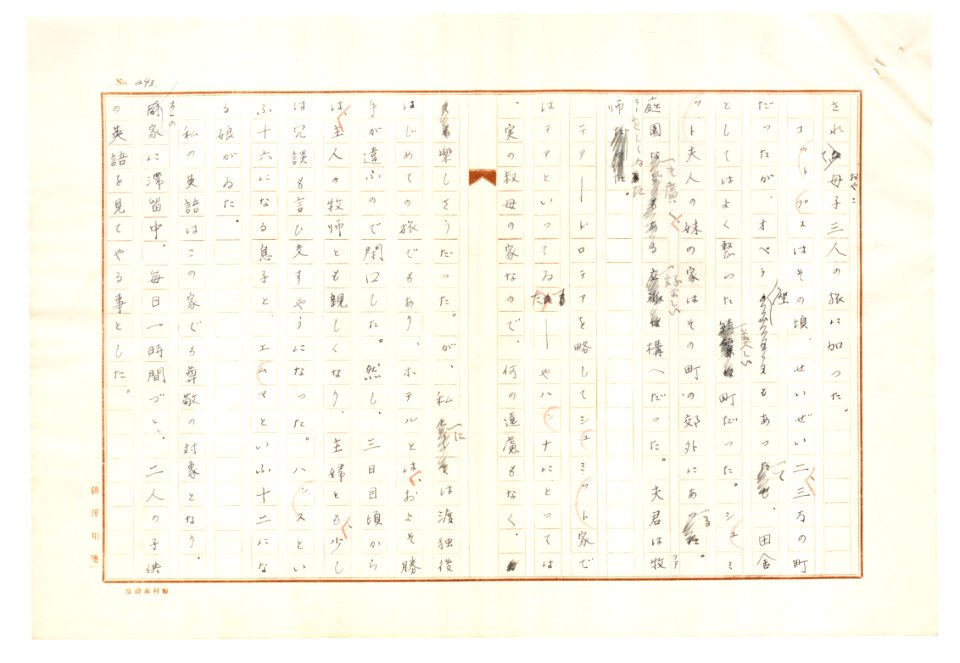 No. 243
され母子三人の旅に加つた。
おやこ
コーブルクはその頃、せいぜい二三万の町
だつたが、オペラ座もあつて、田舎
としてはよく整つた美しい町だつた。シュミ
ット夫人の妹の家はその町の郊外にある。
庭園も廣く好ましい構へだつた。夫君は牧
師をしてゐた。
テアードロテアを略してシュミット家で
はテアといつてゐたーやハンナにとつては
、実の叔母の家なので、何の遠慮もなく、
樂しさうだつた。が、私には渡独後
はじめての旅でもあり、ホテルとはおよそ勝
手が違ふので閉口した。然し、三日目頃から
は主人の牧師とも親しくなり、主婦とも少し
は冗談も言ひ交すやうになつた。ハンスとい
ふ十六になる息子と、エムマといふ十二にな
る娘がゐた。
私の英語はこの家でも尊敬の対象となり、
この家に滞留中、毎日一時間づゝ、二人の子供
の英語を見てやる事とした。